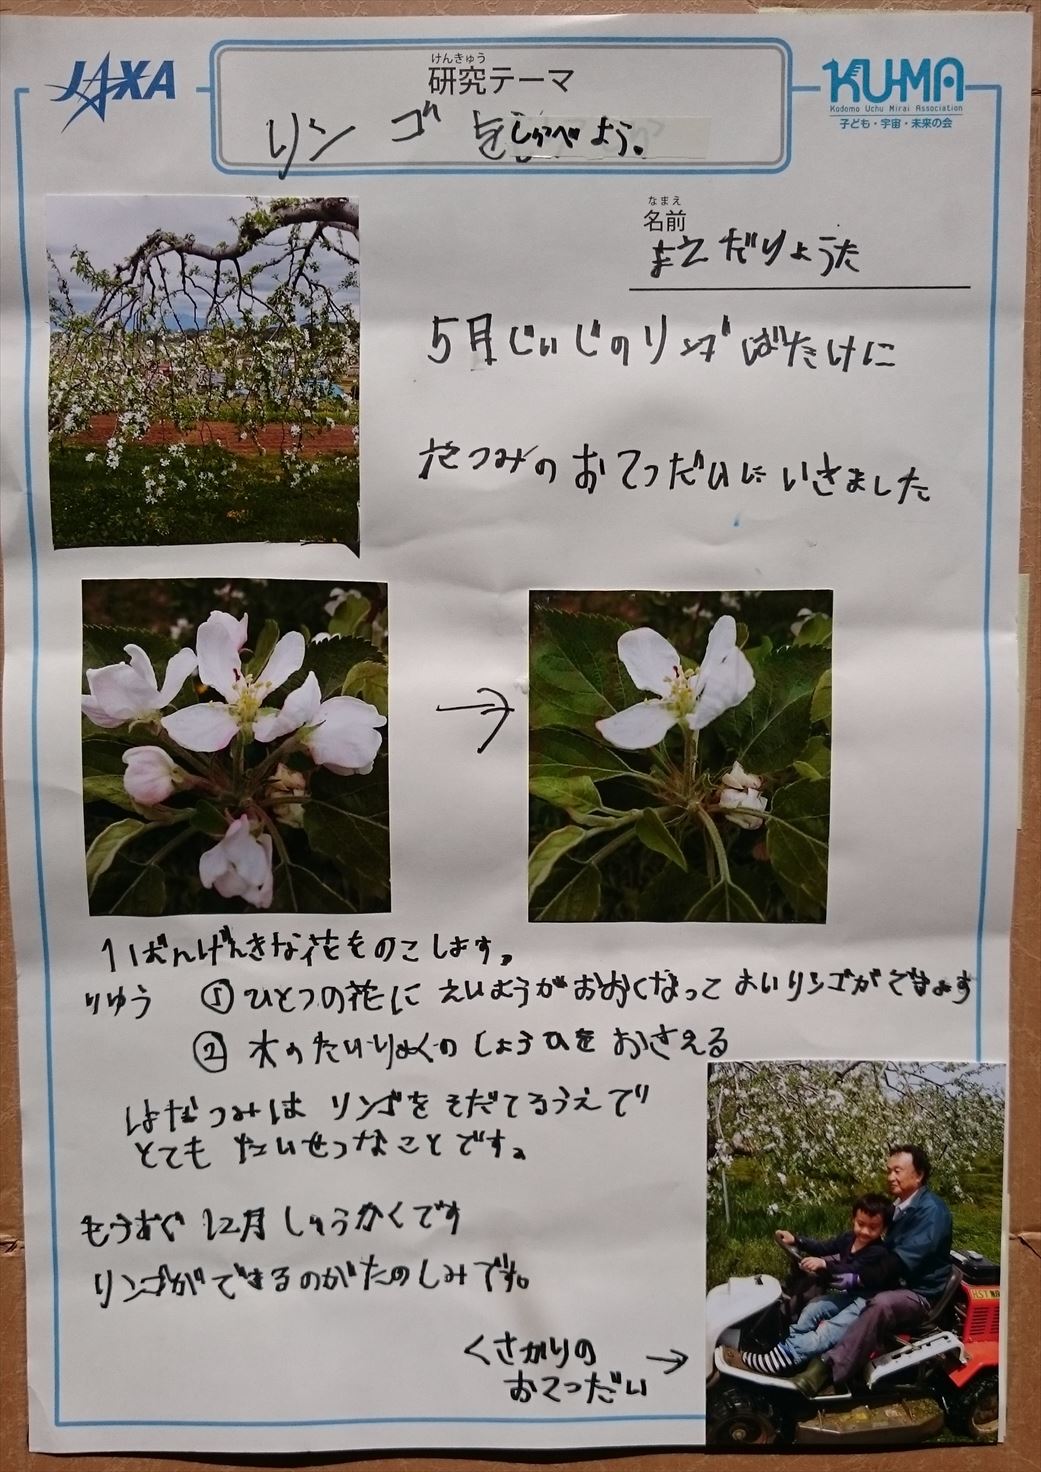 JAXA
けんきゅう
研究テーマ
KU-MA
Kodomo Uchu Mirai Association
子ども・宇宙・未来の会
リンゴをしらべよう。
なまえ
名前
まえだりょうた
5月じいじのリンゴばたけに
花つみのおてつだいにいきました
→
1ばんげんきな花をのこします。
りゆう ①ひとつの花にえいようがおおくなってよいリンゴができます
②木のたいりょくのしょうひをおさえる
はなつみはリンゴをそだてるうえで
とてもたいせつなことです。
もうすぐ12月しゅうかくです
リンゴができるのがたのしみです。
くさかりの
おてつだい →